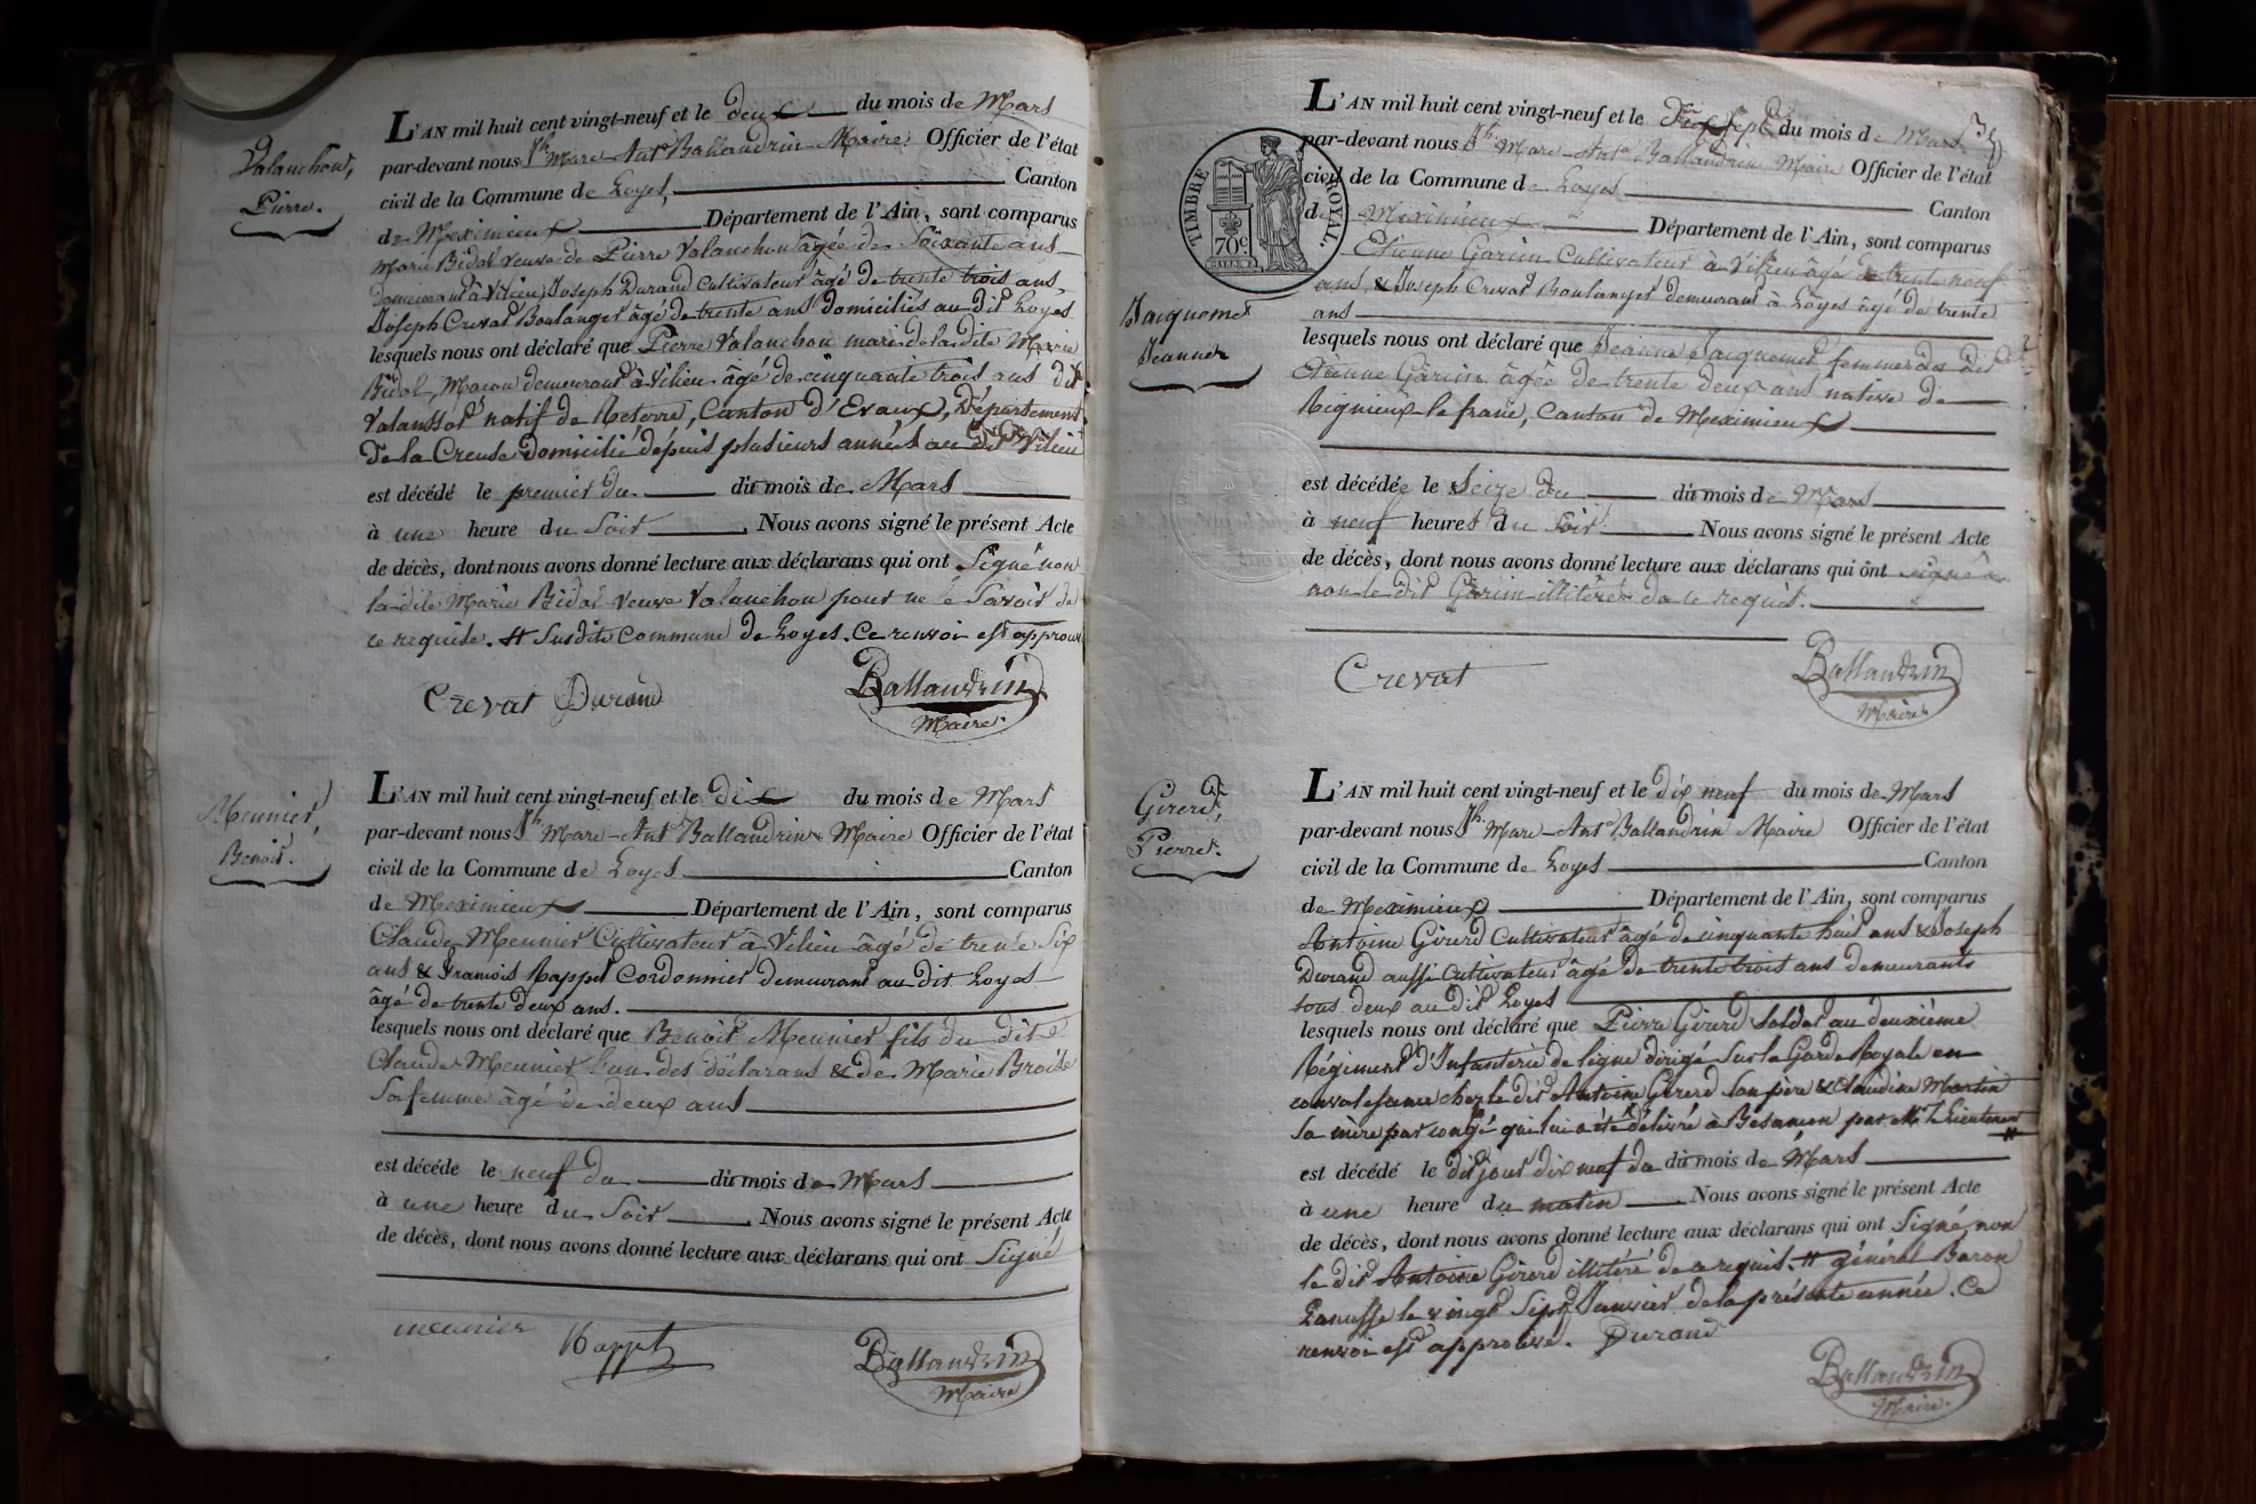 Valanchon,
Pierre.
L'AN mil huit cent vingt-neuf et le deux du mois de Mars
par-devant nous Jh Marc-Ant Ballandrin Maire Officier de l'état
civil de la Commune de Loyes, Canton
de Meximieux Département de l'Ain, sont comparus
Marie Bidal veuve de Pierre Valanchon âgée de Soixante ans
demeurant à Vilieu, Joseph Durand Cultivateur âgé de trente trois ans,
Joseph Crevat Boulanger âgé de trente ans domiciliés au dit Loyes
lesquels nous ont déclaré que Pierre Valanchon mari de la dite Marie
Bidal, Maçon demeurant à Vilieu âgé de cinquante trois ans dit
Valanssot natif de Reterre, Canton d'Evaux, Département
de la Creuse domicilié dépuis plusieurs années au dit Vilieu
est décédé le premier du dit mois de Mars
à une heure du Soir Nous avons signé le présent Acte
de décès, dont nous avons donné lecture aux déclarans qui ont Signé non
la dite Marie Bidal veuve Valanchon pour ne le Savoir de
ce requise. # Susdite Commune de Loyes. Ce renvoi est approuvé
Crevat Durand Ballandrin
Maire.
Meunier,
Benoit.
L'AN mil huit cent vingt-neuf et le dix du mois de Mars
par-devant nous Jh Marc-Ant Ballandrin Maire Officier de l'état
civil de la Commune de Loyes Canton
de Meximieux Département de l'Ain, sont comparus
Claude Meunier Cultivateur à Vilieu âgé de trente Six
ans & François Rappet Cordonnier demeurant au dit Loyes
âgé de trente deux ans.
lesquels nous ont déclaré que Benoit Meunier fils du dit
Claude Meunier l'un des déclarans & de Marie Broisse
Sa femme âgé de deux ans
est décédé le neuf du dit mois de Mars
à une heure du Soir Nous avons signé le présent Acte
de décès, dont nous avons donné lecture aux déclarans qui ont Signé
meunier Rappet Ballandrin
Maire
TIMBRE ROYAL.
70c
Jacquemet
Jeanne
L'AN mil huit cent vingt-neuf et le Dix Sept du mois de Mars
par-devant nous Jh Marc-Ant Ballandrin Maire Officier de l'état
civil de la Commune de Loyes Canton
de Meximieux Département de l'Ain, sont comparus
Etienne Garin Cultivateur à Vilieu âgé de trente neuf
ans & Joseph Crevat Boulanger demeurant à Loyes âgé de trente
ans
lesquels nous ont déclaré que Jeanne Jacquemet femme du dit
Etienne Garin âgée de trente deux ans native de
Rignieux le franc, Canton de Meximieux
est décédée le Seize du dit mois de Mars
à neuf heures du Soir Nous avons signé le présent Acte
de décès, dont nous avons donné lecture aux déclarans qui ont signé
non le dit Garin illitéré de ce requis.
Crevat Ballandrin
Maire.
Girerd,
Pierre.
L'AN mil huit cent vingt-neuf et le dix neuf du mois de Mars
par-devant nous Jh Marc-Ant Ballandrin Maire Officier de l'état
civil de la Commune de Loyes Canton
de Meximieux Département de l'Ain, sont comparus
Antoine Girerd Cultivateur âgé de cinquante huit ans & Joseph
Durand aussi Cultivateur âgé de trente trois ans demeurants
tous deux au dit Loyes
lesquels nous ont déclaré que Pierre Girerd Soldat au deuxième
Régiment d'Infanterie de ligne dirigé Sur la Garde Royale en
convalesance chez le dit Antoine Girerd Son père & Claudine Martin
Sa mère par congé qui lui a été délivré à Besançon par Mr le Lieutenant #
est décédé le dit jour dix neuf du dit mois de Mars
à une heure du matin Nous avons signé le présent Acte
de décès, dont nous avons donné lecture aux déclarans qui ont Signé non
le dit Antoine Girerd illitéré de ce requis. # général Baron
le vingt Sept Janvier de la présente année. Ce
renvoi est approuvé. Durand
Ballandrin
Maire.